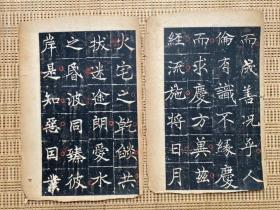 而成善況乎人
倫有識不緣慶
而求慶方冀茲
經流施将日月
火宅之乾燄共
拔迷途朗愛水
之昬波同臻彼
岸是知惡因業